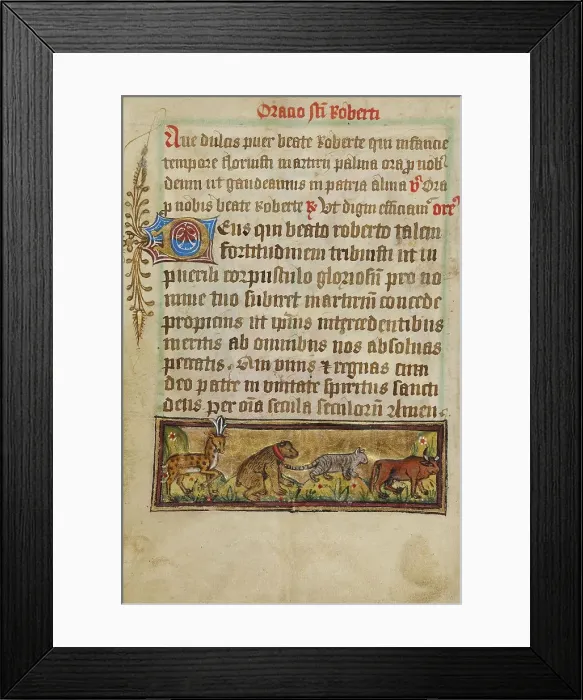 Oracio sc̄i Roberti
Aue dulcis puer beate Roberte qui infancie
tempore floruisti martirii palma ora p nob̄
deum ut gaudeamus in patria alma v̄ Ora
p nobis beate Roberte R Vt digni efficiam̄ ore᷒
Deus qui beato roberto talem
fortitudinem tribuisti ut in
puerili corpusculo gloriosū pro no
mine tuo subiret martiriū concede
propicius ut ip̄ius intercedentibus
meritis ab omnibus nos absoluas
peccatis. Qui viuis ⁊ regnas cum
deo patre in vnitate spiritus sancti
deus per oīa secula seculorū Amen.